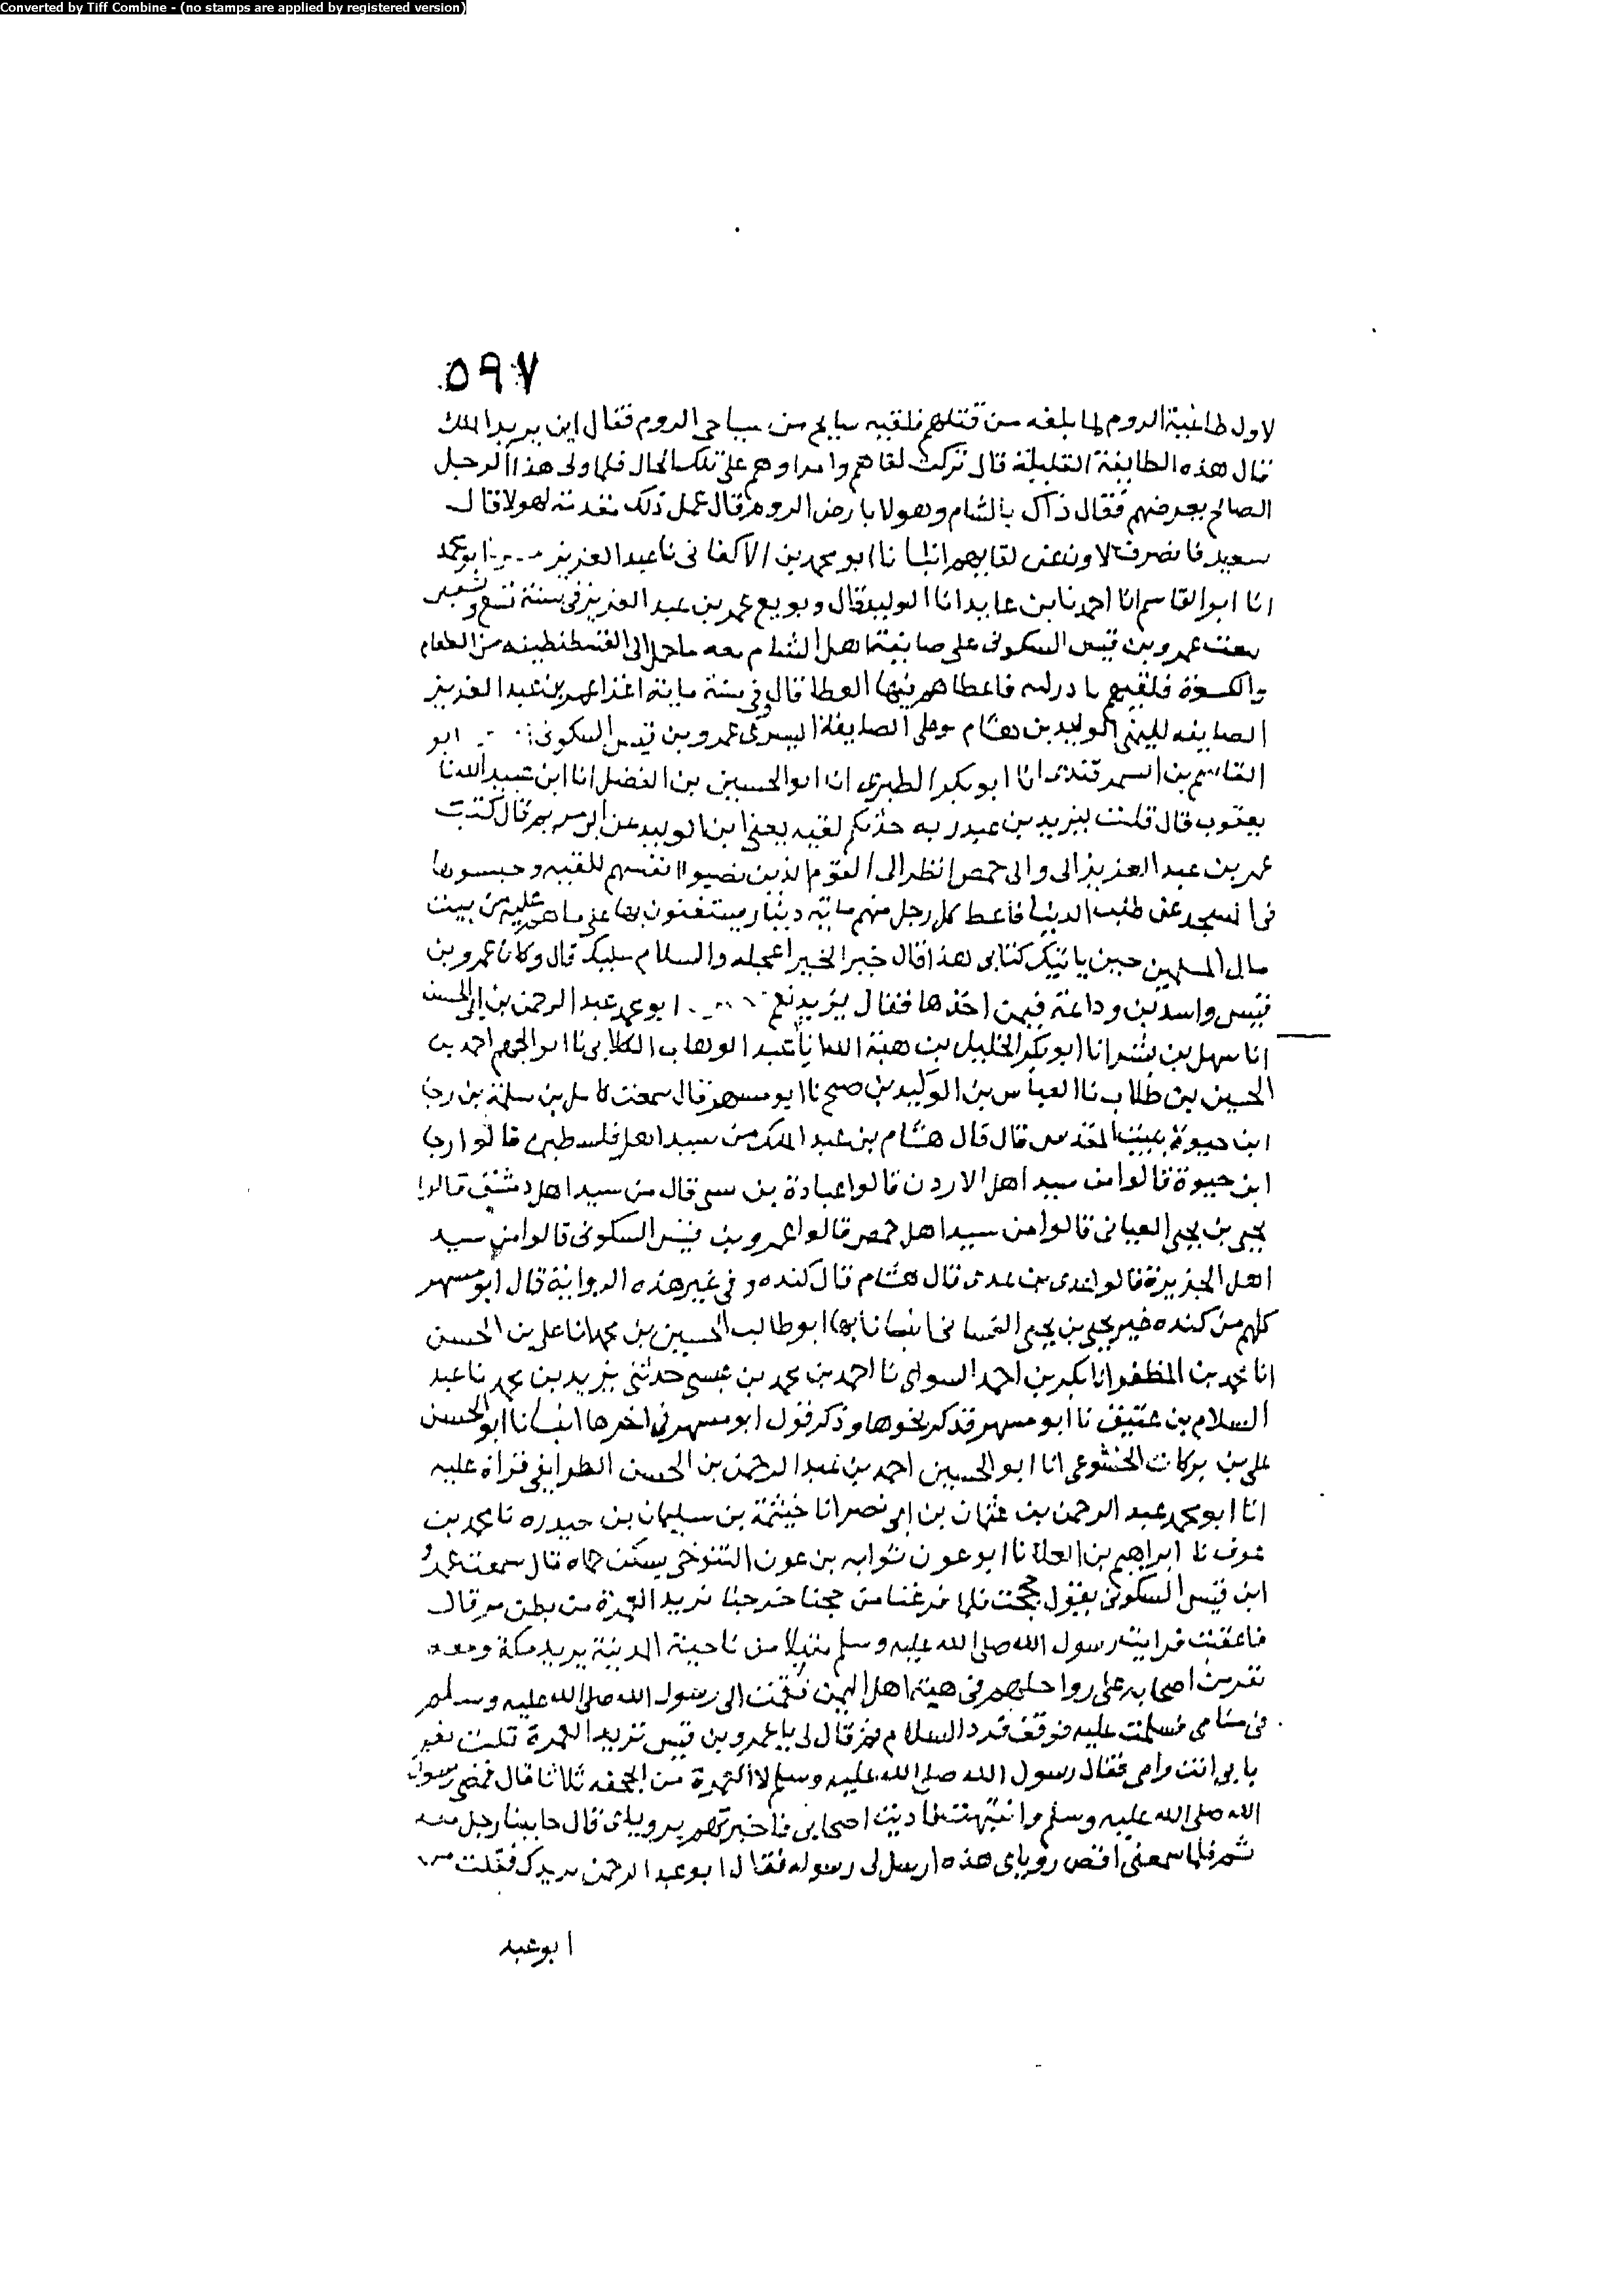 Converted by Tiff Combine - (no stamps are applied by registered version)
٥٩٧
لاول طاغية الروم لما بلغه من قتلهم فلقيه سايح من سياحي الروم فقال اين يريد الملك
قال هذه الطايفة القليلة قال تركت لقاهم وامراوهم على تلك الحال فلما ولى هذا الرجل
الصالح بعرضهم فقال ذاك بالشام وهولا بارض الروم قال عمل ذلك لهولا قال
سعيد فانصرف لاون عن لقايهم انبا نا ابو محمد بن الاكفاني نا عبد العزيز ابو محمد
انا ابو القاسم انا احمد نا بن عايد انا الوليد قال وبويع عمر بن عبد العزيز في سنة تسع وتسعين
بعث عمرو بن قيس السكوني على صايفة اهل الشام معه ما حمل الى القسطنطينه من الطعام
والكسوة فلقيهم فاعطاهم فيها العطا قال وفي سنة ماية اغذا عمر بن عبد العزيز
الصايفه لليمنى الوليد بن هشام وعلى الصايفة اليسرى عمرو بن قيس السكوني ابو
القاسم بن السمرقندى انا ابو بكر الطبري انا ابو الحسين بن الفضل انا ابن نا
يعقوب قال قلت ليزيد بن عبد ربه حدثكم لقيه يعني ابن الوليد عن ابن مريم قال كتب
عمر بن عبد العزيز الى والى حمص انظر الى القوم الذين نصبوا انفسهم للفقه وحبسوها
في المسجد عن طلب الدنيا فاعط كل رجل منهم ماية دينار يستغنون بها على ما هم عليه من بيت
مال المسلمين حين ياتيك كتابي هذا قال خير الخير اعجله والسلام عليك قال وكان عمرو بن
قيس واسد بن وداعة فيمن اخذها فقال يزيد نعم ابو محمد عبد الرحمن بن ابي الحسن
انا سهل بن بشر انا ابو بكر الخليل بن هبة الله نا عبد الوهاب الكلابي نا ابو الجهم احمد بن
الحسين بن طلاب نا العباس بن الوليد بن صبح نا ابو مسهر قال سمعت كامل بن سلمة بن رجا
ابن حيوة ببيت المقدس قال قال هشام بن عبد الملك من سيد اهل فلسطين قالوا رجا
ابن حيوة قالوا من سيد اهل الاردن قالوا عبادة بن سى قال من سيد اهل دمشق قالوا
يحيى بن يحيى العيانى قالوا من سيد اهل حمص قالوا عمرو بن قيس السكوني قالوا من سيد
اهل الجزيرة قالوا عدى بن عدى قال هشام قال كنده و في غير هذه الرواية قال ابو مسهر
كلهم من كنده غير يحيى بن يحيى الغساني انبانا بها ابو طالب الحسين بن محمد انا على بن الحسن
انا محمد بن المظفر انا بكر بن احمد نا احمد بن محمد بن عيسى حدثنى يزيد بن محمد نا عبد
السلام بن عتيق نا ابو مسهر فذكر نحوها وذكر قول ابو مسهر في اخرها انبانا ابو الحسن
على بن بركات الخشوعي انا ابو الحسين احمد بن عبد الرحمن بن الحسن الطرايفي قراة عليه
انا ابو محمد عبد الرحمن بن عثمان بن ابي نصر انا خيثمة بن سليمان بن حيدره نا محمد بن
عوف نا ابراهيم بن العلا نا ابو عون ثوابه بن عون التنوخى يسكن حماه قال سمعت عمرو
ابن قيس السكوني يقول حججت فلما فرغنا من حجنا خرجنا نريد العمرة من بطن مر قال
فرايت رسول الله صلى الله عليه وسلم مقبلا من ناحية المدينة يريد مكة ومعه
نفر من اصحابه على رواحلهم في هيئة اهل اليمن فقمت الى رسول الله صلى الله عليه وسلم
في منامى فسلمت عليه فوقف فرد السلام ثم قال لى يا عمرو بن قيس تريد العمرة قلت نعم
بابى انت وامى فقال رسول الله صلى الله عليه وسلم لا العمرة من الجحفه ثلاثا قال فمضى رسول
الله صلى الله عليه وسلم وانتبهت فناديت اصحابى فاخبرتهم برويلى قال جانبنا رجل معه
ثم فلما سمعنى اقص روياى هذه ارسل لى رسوله فقال ابو عبد الرحمن يريدك فقلت من
ابو عبد